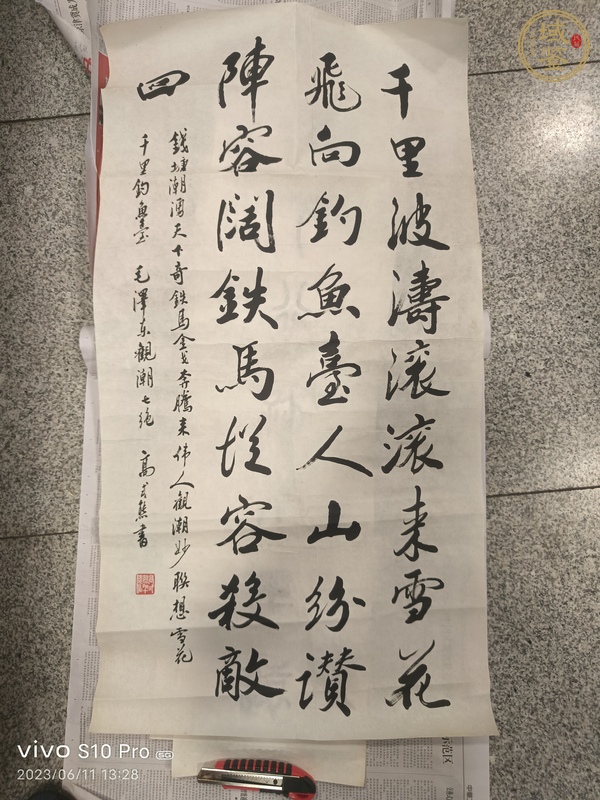 千里波濤滚滚来雪花
飛向釣魚臺人山紛讚
陣容闊鉄馬從容殺敵
回
錢塘潮湧天下奇鉄馬金戈奔騰来伟人觀潮妙聯想雪花
千里釣魚臺 毛澤东觀潮七绝 高式熊書
vivo S10 Pro 5G
2023/06/11 13:28